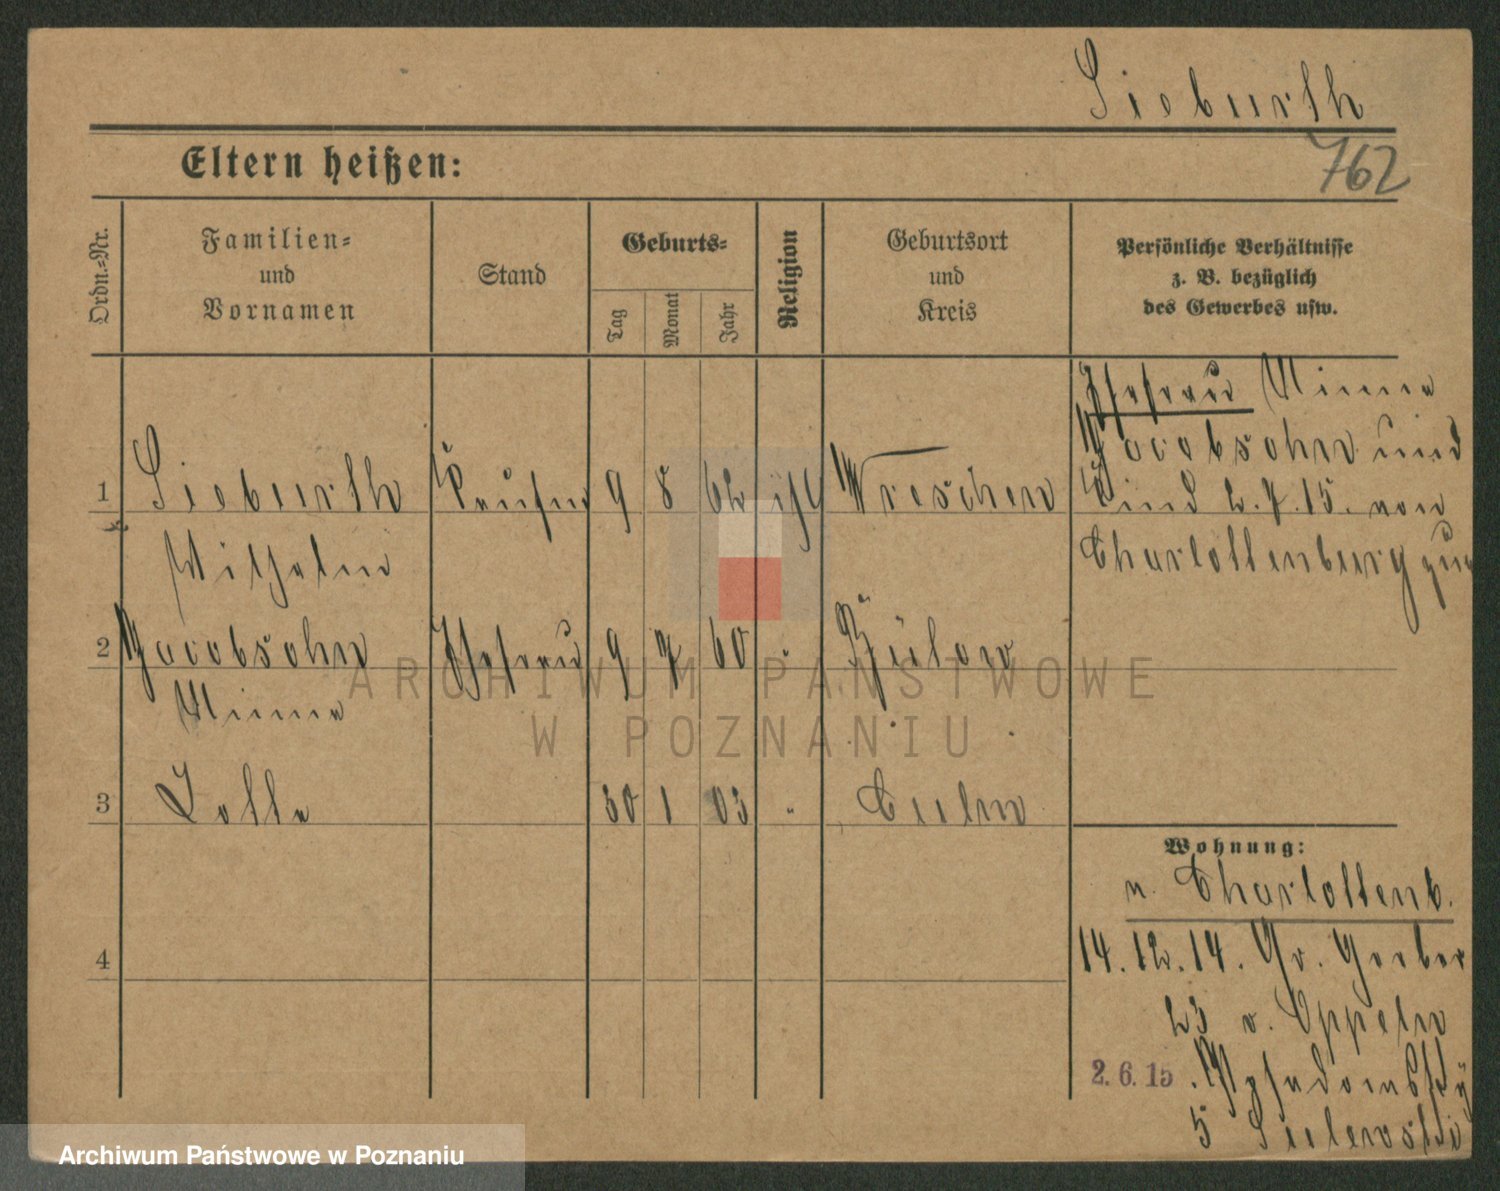 Sieburth
762
Eltern heißen:
Ordn.=Nr.
Familien=
und
Vornamen
Stand
Geburts=
Tag
Monat
Jahr
Religion
Geburtsort
und
Kreis
Persönliche Verhältnisse
z. B. bezüglich
des Gewerbes usw.
Ehefrau Minna
Jacobsohn und
Kind 2.7.15. von
Charlottenburg
1 Sieburth Kaufm 9 8 62 Wreschen
Wilhelm
2 Jacobsohn Ehefrau 9 7 60 "
Minna
3 Lotte 30 1 03 " Culm
4
Wohnung:
n. Charlottenb.
14.12.14. Gr. Gerber
23 v. Oppeln
2.6.15
5
ARCHIWUM PAŃSTWOWE
W POZNANIU
Archiwum Państwowe w Poznaniu